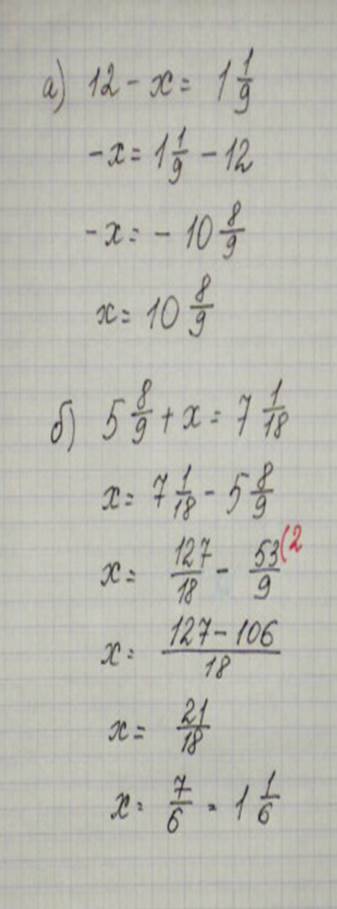 а) 12 - x = 1 1/9
-x = 1 1/9 - 12
-x = - 10 8/9
x = 10 8/9
б) 5 8/9 + x = 7 1/18
x = 7 1/18 - 5 8/9
x = 127/18 - 53/9 (2
x = 127-106/18
x = 21/18
x = 7/6 = 1 1/6